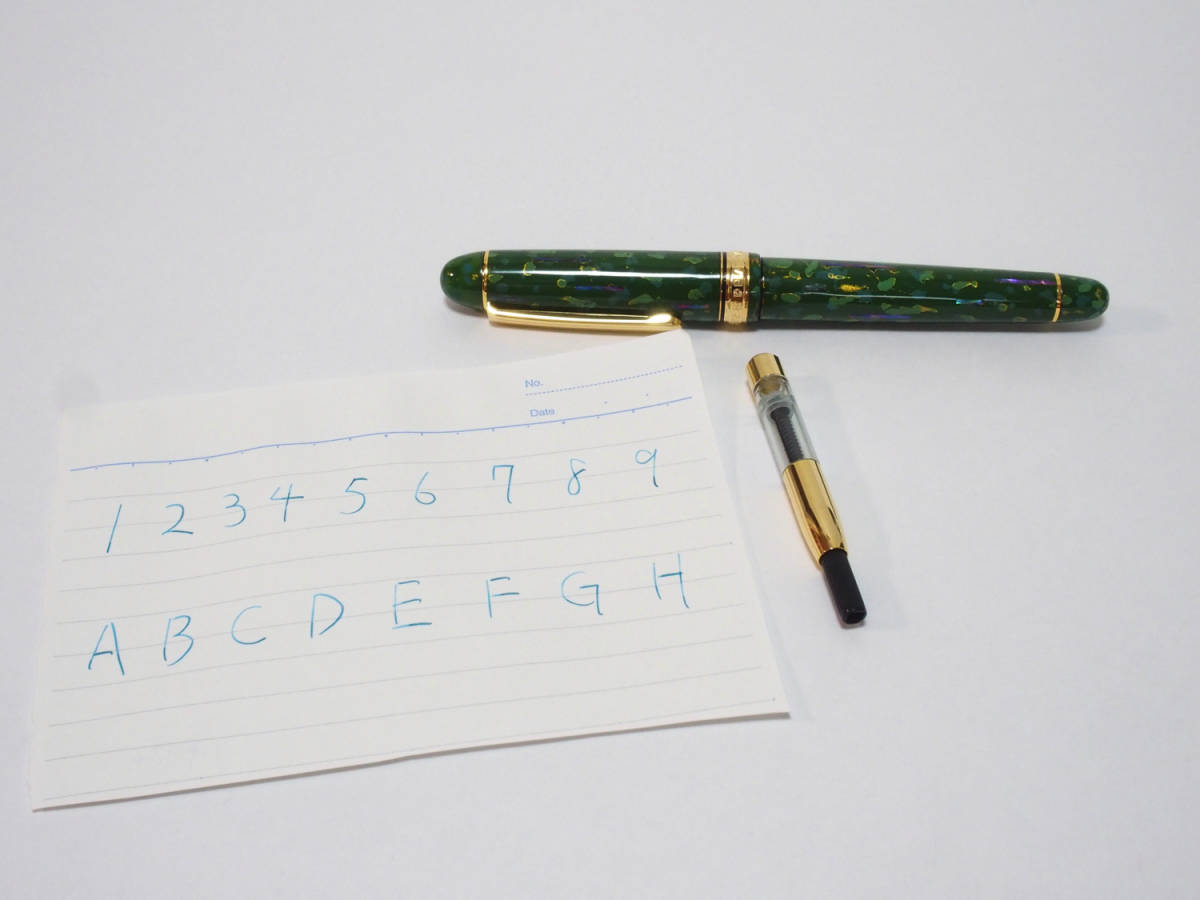 No.
Date
1 2 3 4 5 6 7 8 9
A B C D E F G H